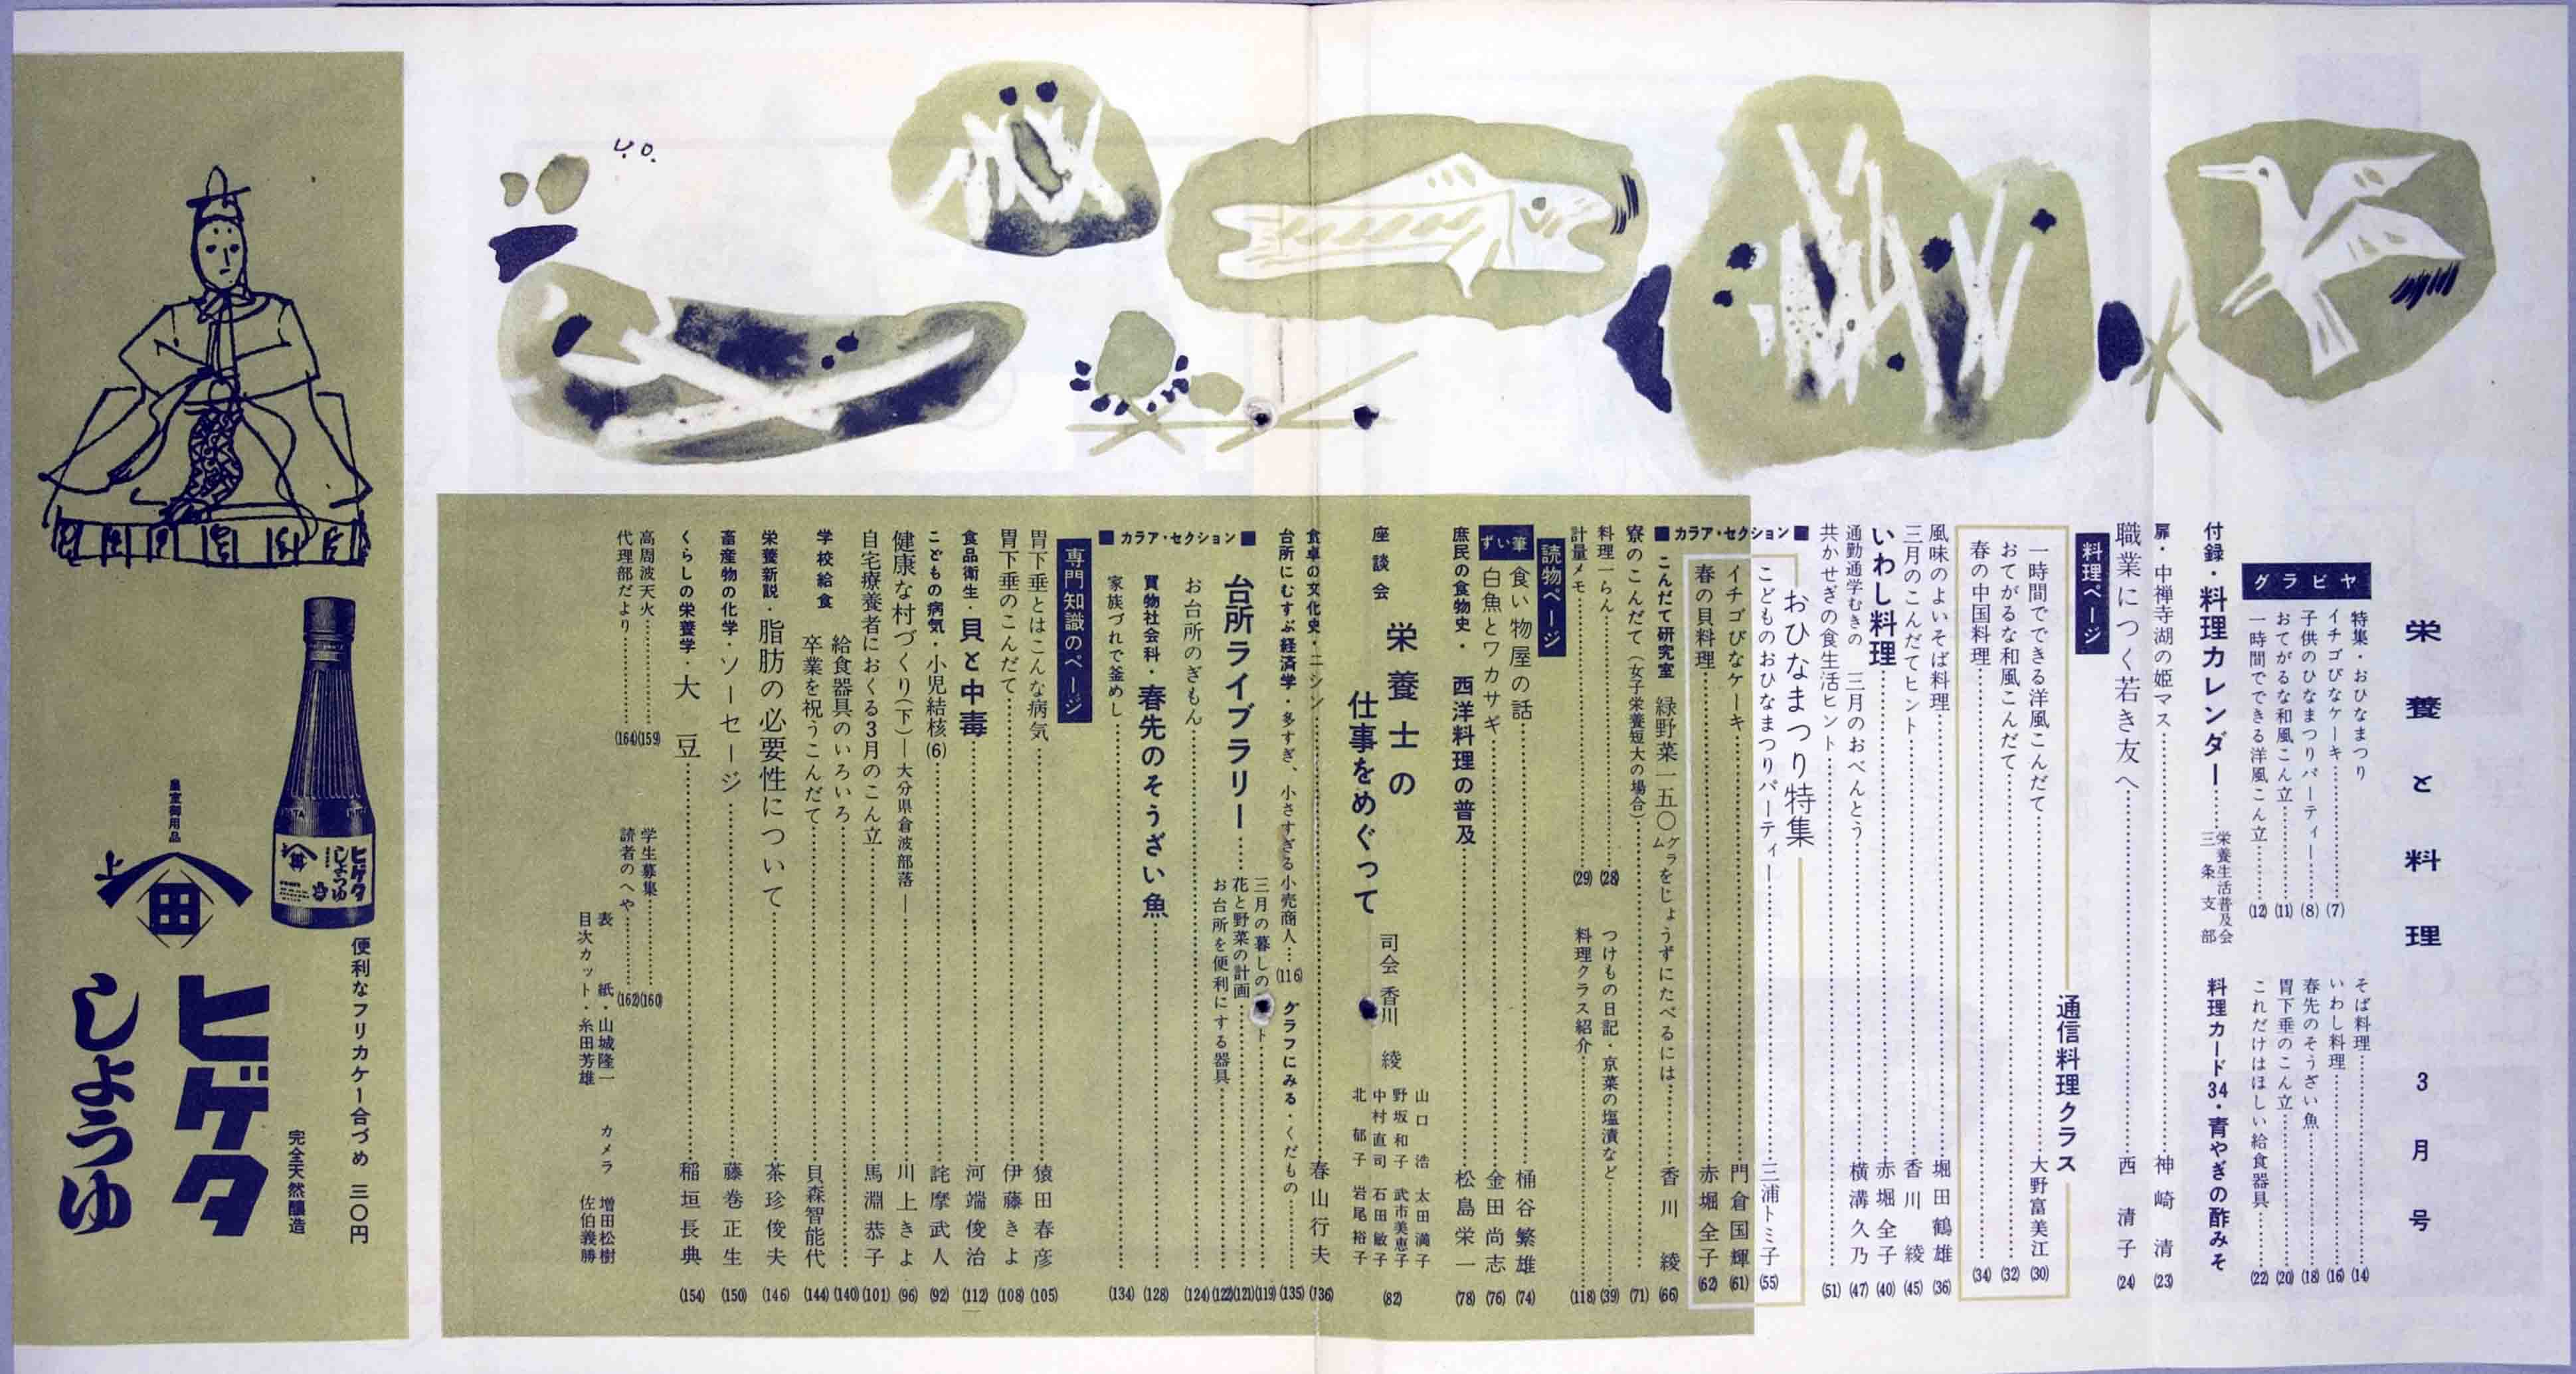 栄養と料理 3月号
グラビヤ
特集・おひなまつり
イチゴびなケーキ……(7)
子供のひなまつりパーティー……(8)
おてがるな和風こん立……(11)
一時間でできる洋風こん立……(12)
そば料理……(14)
いわし料理……(16)
春先のそうざい魚……(18)
胃下垂のこん立……(20)
これだけはほしい給食器具……(22)
付録・料理カレンダー……栄養生活普及会三条支部
料理カード34・青やぎの酢みそ
扉・中禅寺湖の姫マス……神崎清(23)
職業につく若き友へ……西清子(24)
料理ページ
通信料理クラス
一時間でできる洋風こんだて……大野富美江(30)
おてがるな和風こんだて……(32)
春の中国料理……(34)
風味のよいそば料理……堀田鶴雄(36)
三月のこんだてヒント……香川綾(45)
いわし料理……赤堀全子(40)
通勤通学むきの 三月のおべんとう……横溝久乃(47)
共かせぎの食生活ヒント……(51)
■カラア・セクション■
おひなまつり特集
こどものおひなまつりパーティー……三浦トミ子(55)
イチゴびなケーキ……門倉国輝(61)
春の貝料理……赤堀全子(62)
こんだて研究室 緑野菜一五〇グラムをじょうずにたべるには……香川綾(66)
寮のこんだて(女子栄養短大の場合)……(71)
料理一らん……(28)
計量メモ……(29)
つけもの日記・京菜の塩漬など……(39)
料理クラス紹介……(118)
読物ページ
ずい筆
食い物屋の話……桶谷繁雄(74)
白魚とワカサギ……金田尚志(76)
庶民の食物史・西洋料理の普及……松島栄一(78)
座談会 栄養士の仕事をめぐって
司会 香川綾
山口浩 太田満子
野坂和子 武市美恵子
中村直司 石田敏子
北郁子 岩尾裕子
(82)
食卓の文化史・ニシン……春山行夫(136)
台所にむすぶ経済学・多すぎ、小さすぎる小売商人…(116)
グラフにみる・くだもの……(135)
■カラア・セクション■
台所ライブラリー……
三月の暮しの ト……(119)
花と野菜の計画……(121)
お台所を便利にする器具……(122)
お台所のぎもん……(124)
買物社会科・春先のそうざい魚……(128)
家族づれで釜めし……(134)
専門知識のページ
胃下垂とはこんな病気……猿田春彦(105)
胃下垂のこんだて……伊藤きよ(108)
食品衛生・貝と中毒……河端俊治(112)
こどもの病気・小児結核(6)……詫摩武人(92)
健康な村づくり(下)―大分県倉波部落―川上きよ(96)
自宅療養者におくる3月のこん立……馬淵恭子(101)
学校給食
給食器具のいろいろ……(140)
卒業を祝うこんだて……貝森智能代(144)
栄養新説・脂肪の必要性について……茶珍俊夫(146)
畜産物の化学・ソーセージ……藤巻正生(150)
くらしの栄養学・大豆……稲垣長典(154)
高周波天火……(159)
代理部だより……(164)
学生募集……(160)
読者のへや……(162)
表紙・山城隆一
目次カット・糸田芳雄
カメラ 増田松樹
佐伯義勝
便利なフリカケー合づめ 三〇円
完全天然醸造
ヒゲタ
しょうゆ
皇室御用品
上
田
ヒゲタ
しょうゆ